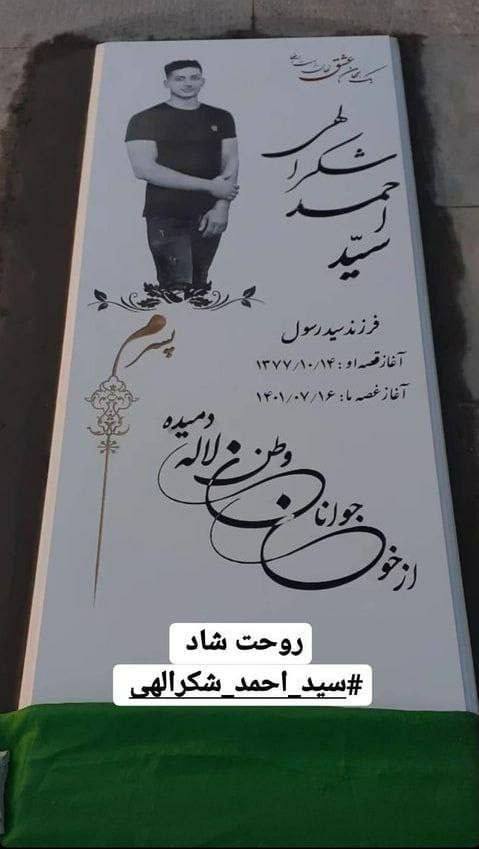 عشق
سیّد احمد شکرالهی
پسرم
فرزند سید رسول
آغاز قصه او : ۱۳۷۷/۱۰/۱۴
آغاز غصه ما : ۱۴۰۱/۰۷/۱۶
از خون جوانان وطن لاله دمیده
روحت شاد
#سید_احمد_شکرالهی